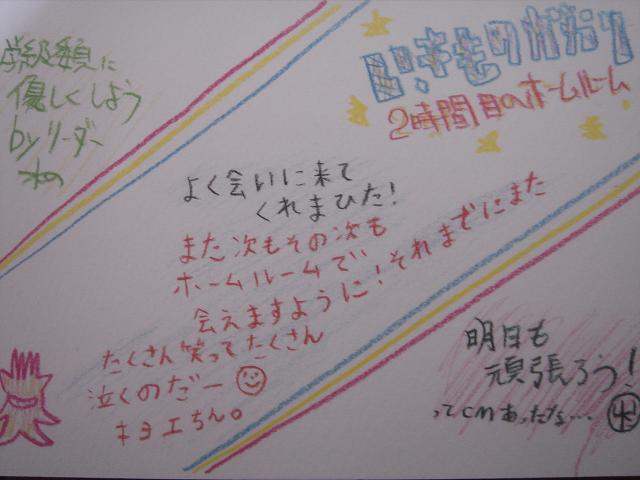 学級委員に
優しくしよう
byリーダー
水の
いきものがたり
2時間目のホームルーム
よく会いに来て
くれまひた!
また次もその次も
ホームルームで
会えますように!それまでにまた
たくさん笑ってたくさん
泣くのだー
キヨエちん。
明日も
頑張ろう!
ってcmあったな…